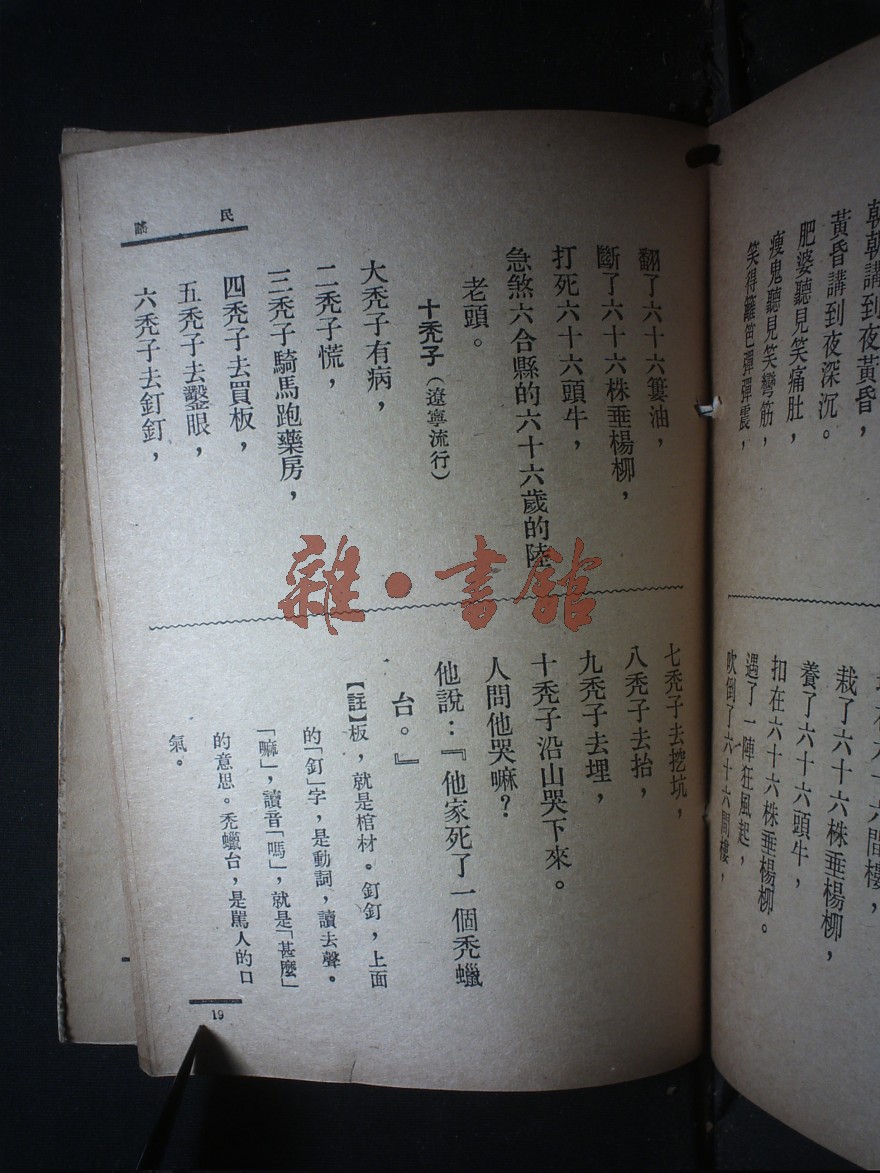 朝朝講到夜黃昏，
黃昏講到夜深沉。
肥婆聽見笑痛肚，
瘦鬼聽見笑彎筋，
笑得籬笆彈彈震，
栽了六十六株垂楊柳，
養了六十六頭牛，
扣在六十六株垂楊柳。
遇了一陣狂風起，
吹倒了六十六間樓，
民謠
翻了六十六簍油，
斷了六十六株垂楊柳，
打死六十六頭牛，
急煞六合縣的六十六歲的陸
老頭。
十禿子（遼寧流行）
大禿子有病，
二禿子慌，
三禿子騎馬跑藥房，
四禿子去買板，
五禿子去鑿眼，
六禿子去釘釘，
七禿子去挖坑，
八禿子去抬，
九禿子去埋，
十禿子沿山哭下來。
人問他哭嘛？
他說：『他家死了一個禿蠟
台。』
【註】板，就是棺材。釘釘，上面
的「釘」字，是動詞，讀去聲。
「嘛」，讀音「嗎」，就是「甚麼」
的意思。禿蠟台，是罵人的口
氣。
19
雜·書館